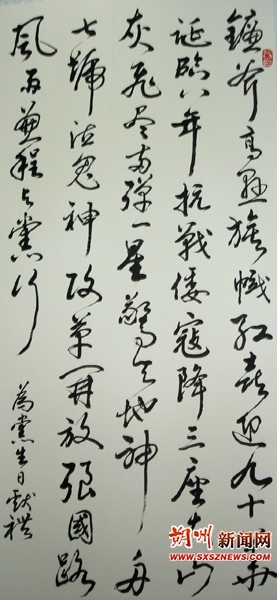 鐮斧高懸旗幟红喜迎九十华
诞臨八年抗戰倭寇降三座大山
灰飛尽两弹一星驚天地神舟
七號泣鬼神改革開放强國路
風雨兼程与黨行
為黨生日献禮
朔州新闻网
www.sxsznews.com